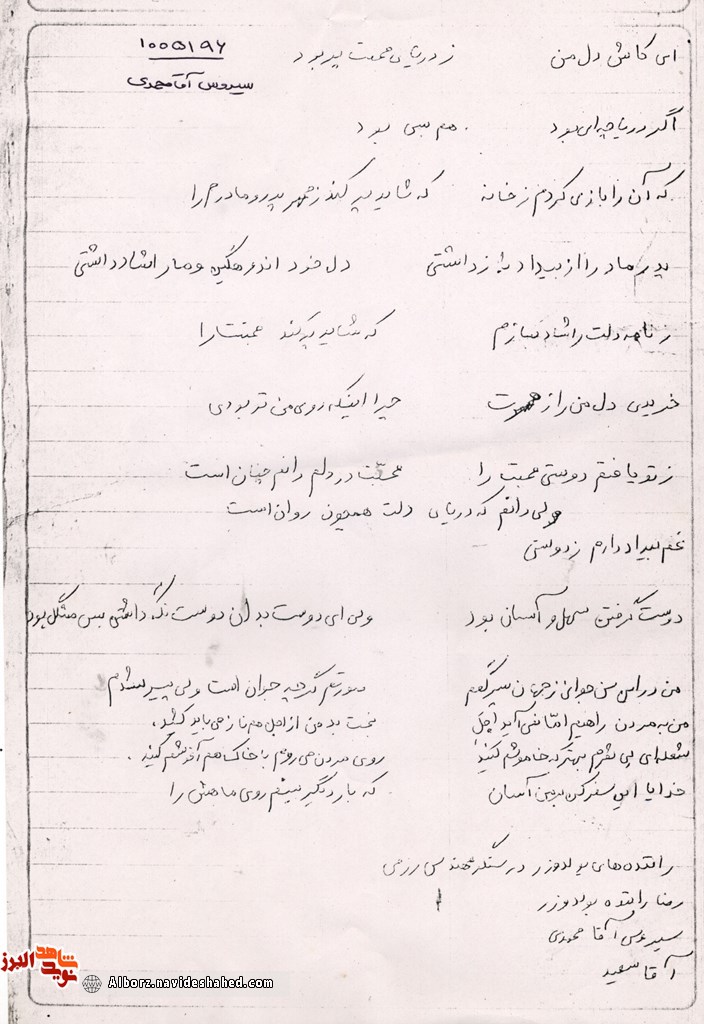 ۱۰۰۵۱۹۶
سیروس آقامحمدی
ای کاش دل من ز دریای محبت پر بود
اگر دریاچه‌ای بود هم بسی بود
که آن را بازی کردم ز خانه که شاید پر کند ز مهر پدر و مادرم را
پدر مادر را از بیداد
دل خود و ما را شاد داشتی
دلت را شاد سازم که شاید پر کند محبتت را
خریدی دل من را از چرا اینکه روی من تو بودی
ز تو یافتم دوستی محبت را محبت در دلم دانم چنان است
ولی دانم که دریای دلت همچون روان است
غم بیداد دارم ز دوستی
دوست گرفتن سهل و آسان بود ولی ای دوست بدان دوست نگه داشتن بس مشگل بود
من در این سن جوانی ز جهان سیر شدم صورتم گرچه جوان است ولی پیر شدم
من به مردن راضیم امّا نمی آید اجل بخت بد من از اجل هم ناز می باید کشید،
شعله‌ای بی نفرم بهتر که خاموشم کنید روی مردن می روم با خاک هم آغوشم کنید.
خدایا این سفر کن بر من آسان که بار دیگر بینم روی ماهش را
راننده‌های بولدوزر در سنگر مهندسی رزمی
رضا راننده بولدوزر
سیروس آقا محمدی
آقا سعید
شاهد
نوید
البرز
Alborz.navideshahed.com